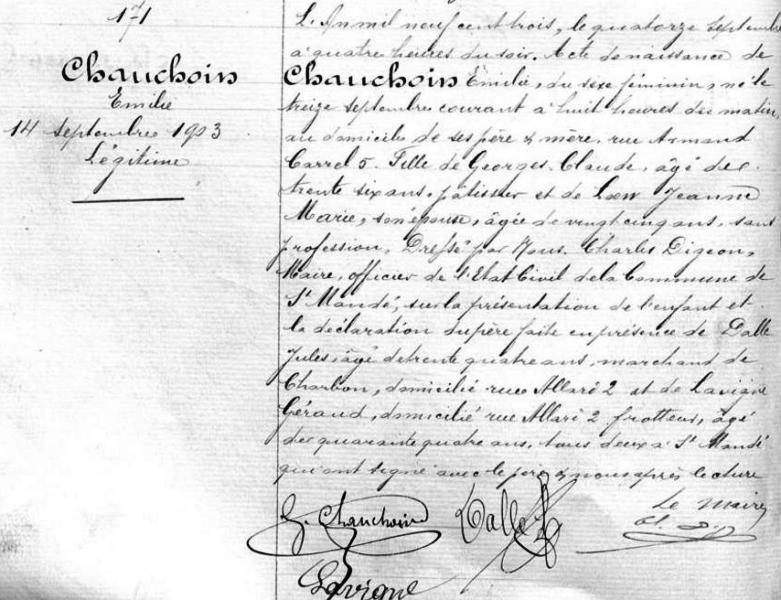 171
Chauchoin
Emilie
14 septembre 1903
Légitime
L'An mil neuf cent trois, le quatorze septembre
à quatre heures du soir. Acte de naissance de
Chauchoin Emilie, du sexe féminin, né le
treize septembre courant à huit heures du matin,
au domicile de ses père & mère, rue Armand
Carrel 5. Fille de Georges Claude, âgé de
trente six ans, pâtissier et de Loew Jeanne
Marie, son épouse, âgée de vingt cinq ans, sans
profession, Dressé par Nous. Charles Digeon,
Maire, officier de l'Etat Civil de la Commune de
St Mandé, sur la présentation de l'enfant et
la déclaration du père faite en présence de Dalle
Jules, âgé de trente quatre ans, marchand de
Charbon, domicilié rue Allard 2 et de Lavigne
Géraud, domicilié rue Allard 2 frotteur, âgé
de quarante quatre ans, tous deux à St Mandé
qui ont signé avec le père & nous après lecture
G. Chauchoin Dalle Le Maire
Lavigne